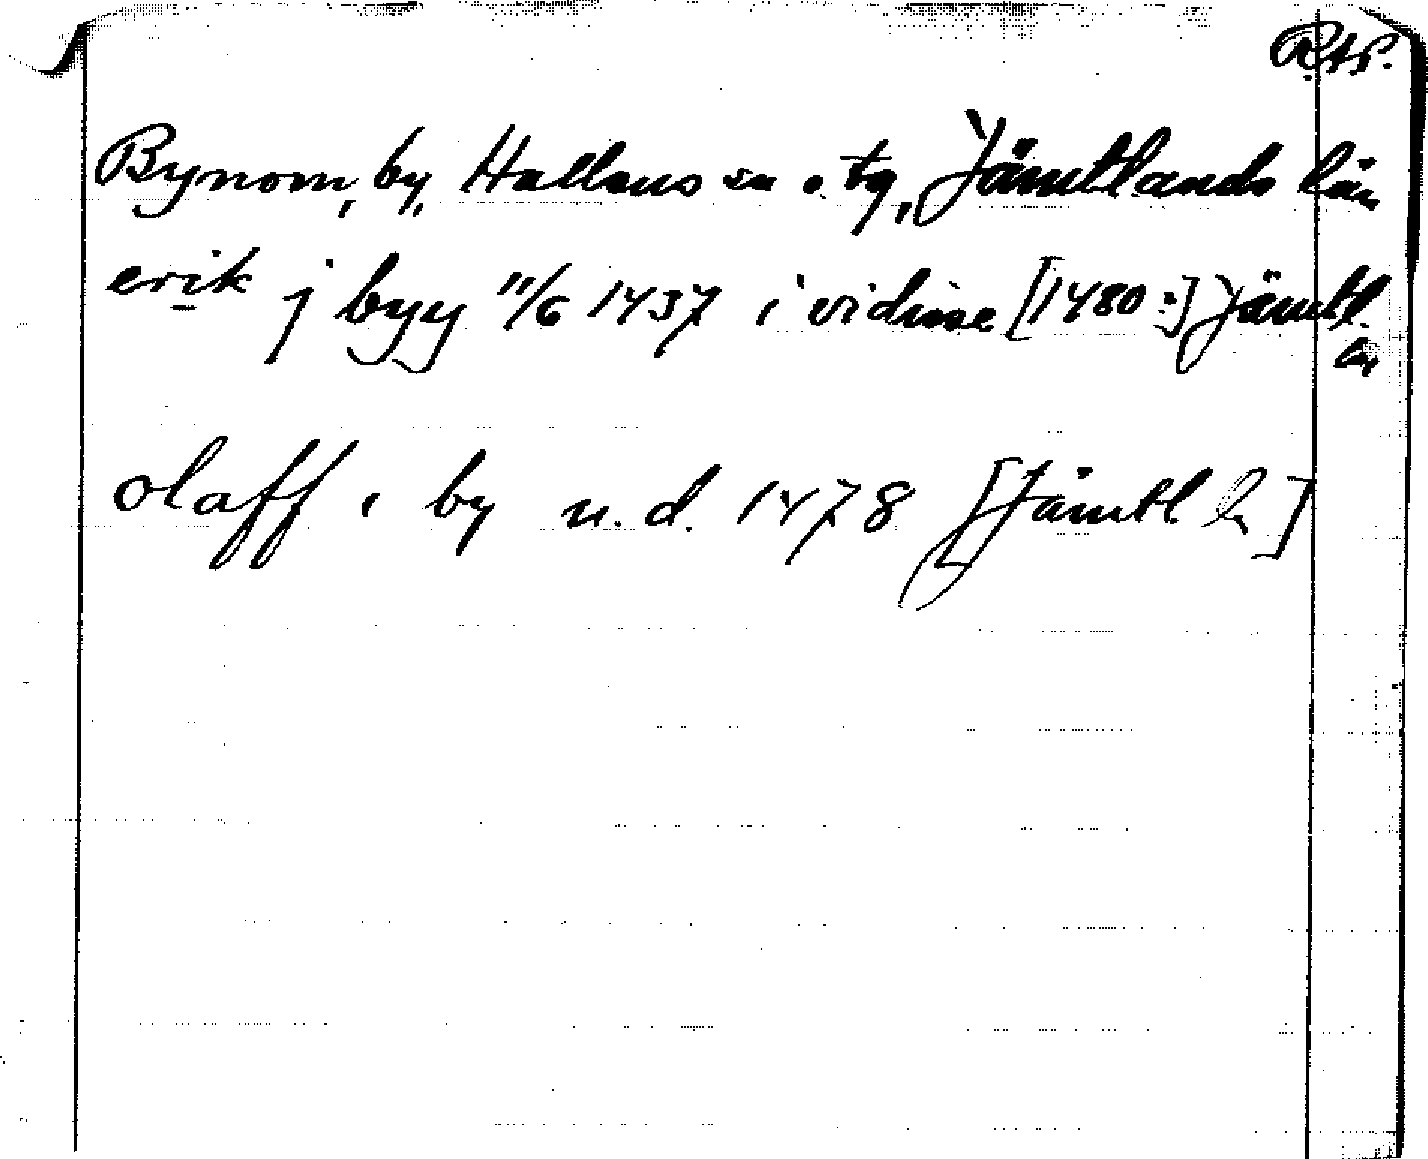 Bynom, by, Hallens sn o. tg, Jämtlands län
erik j byy 11/6 1437 i vidisse [1480:] Jämtl.
olaff i by u. d. 1478 [Jämtl h]